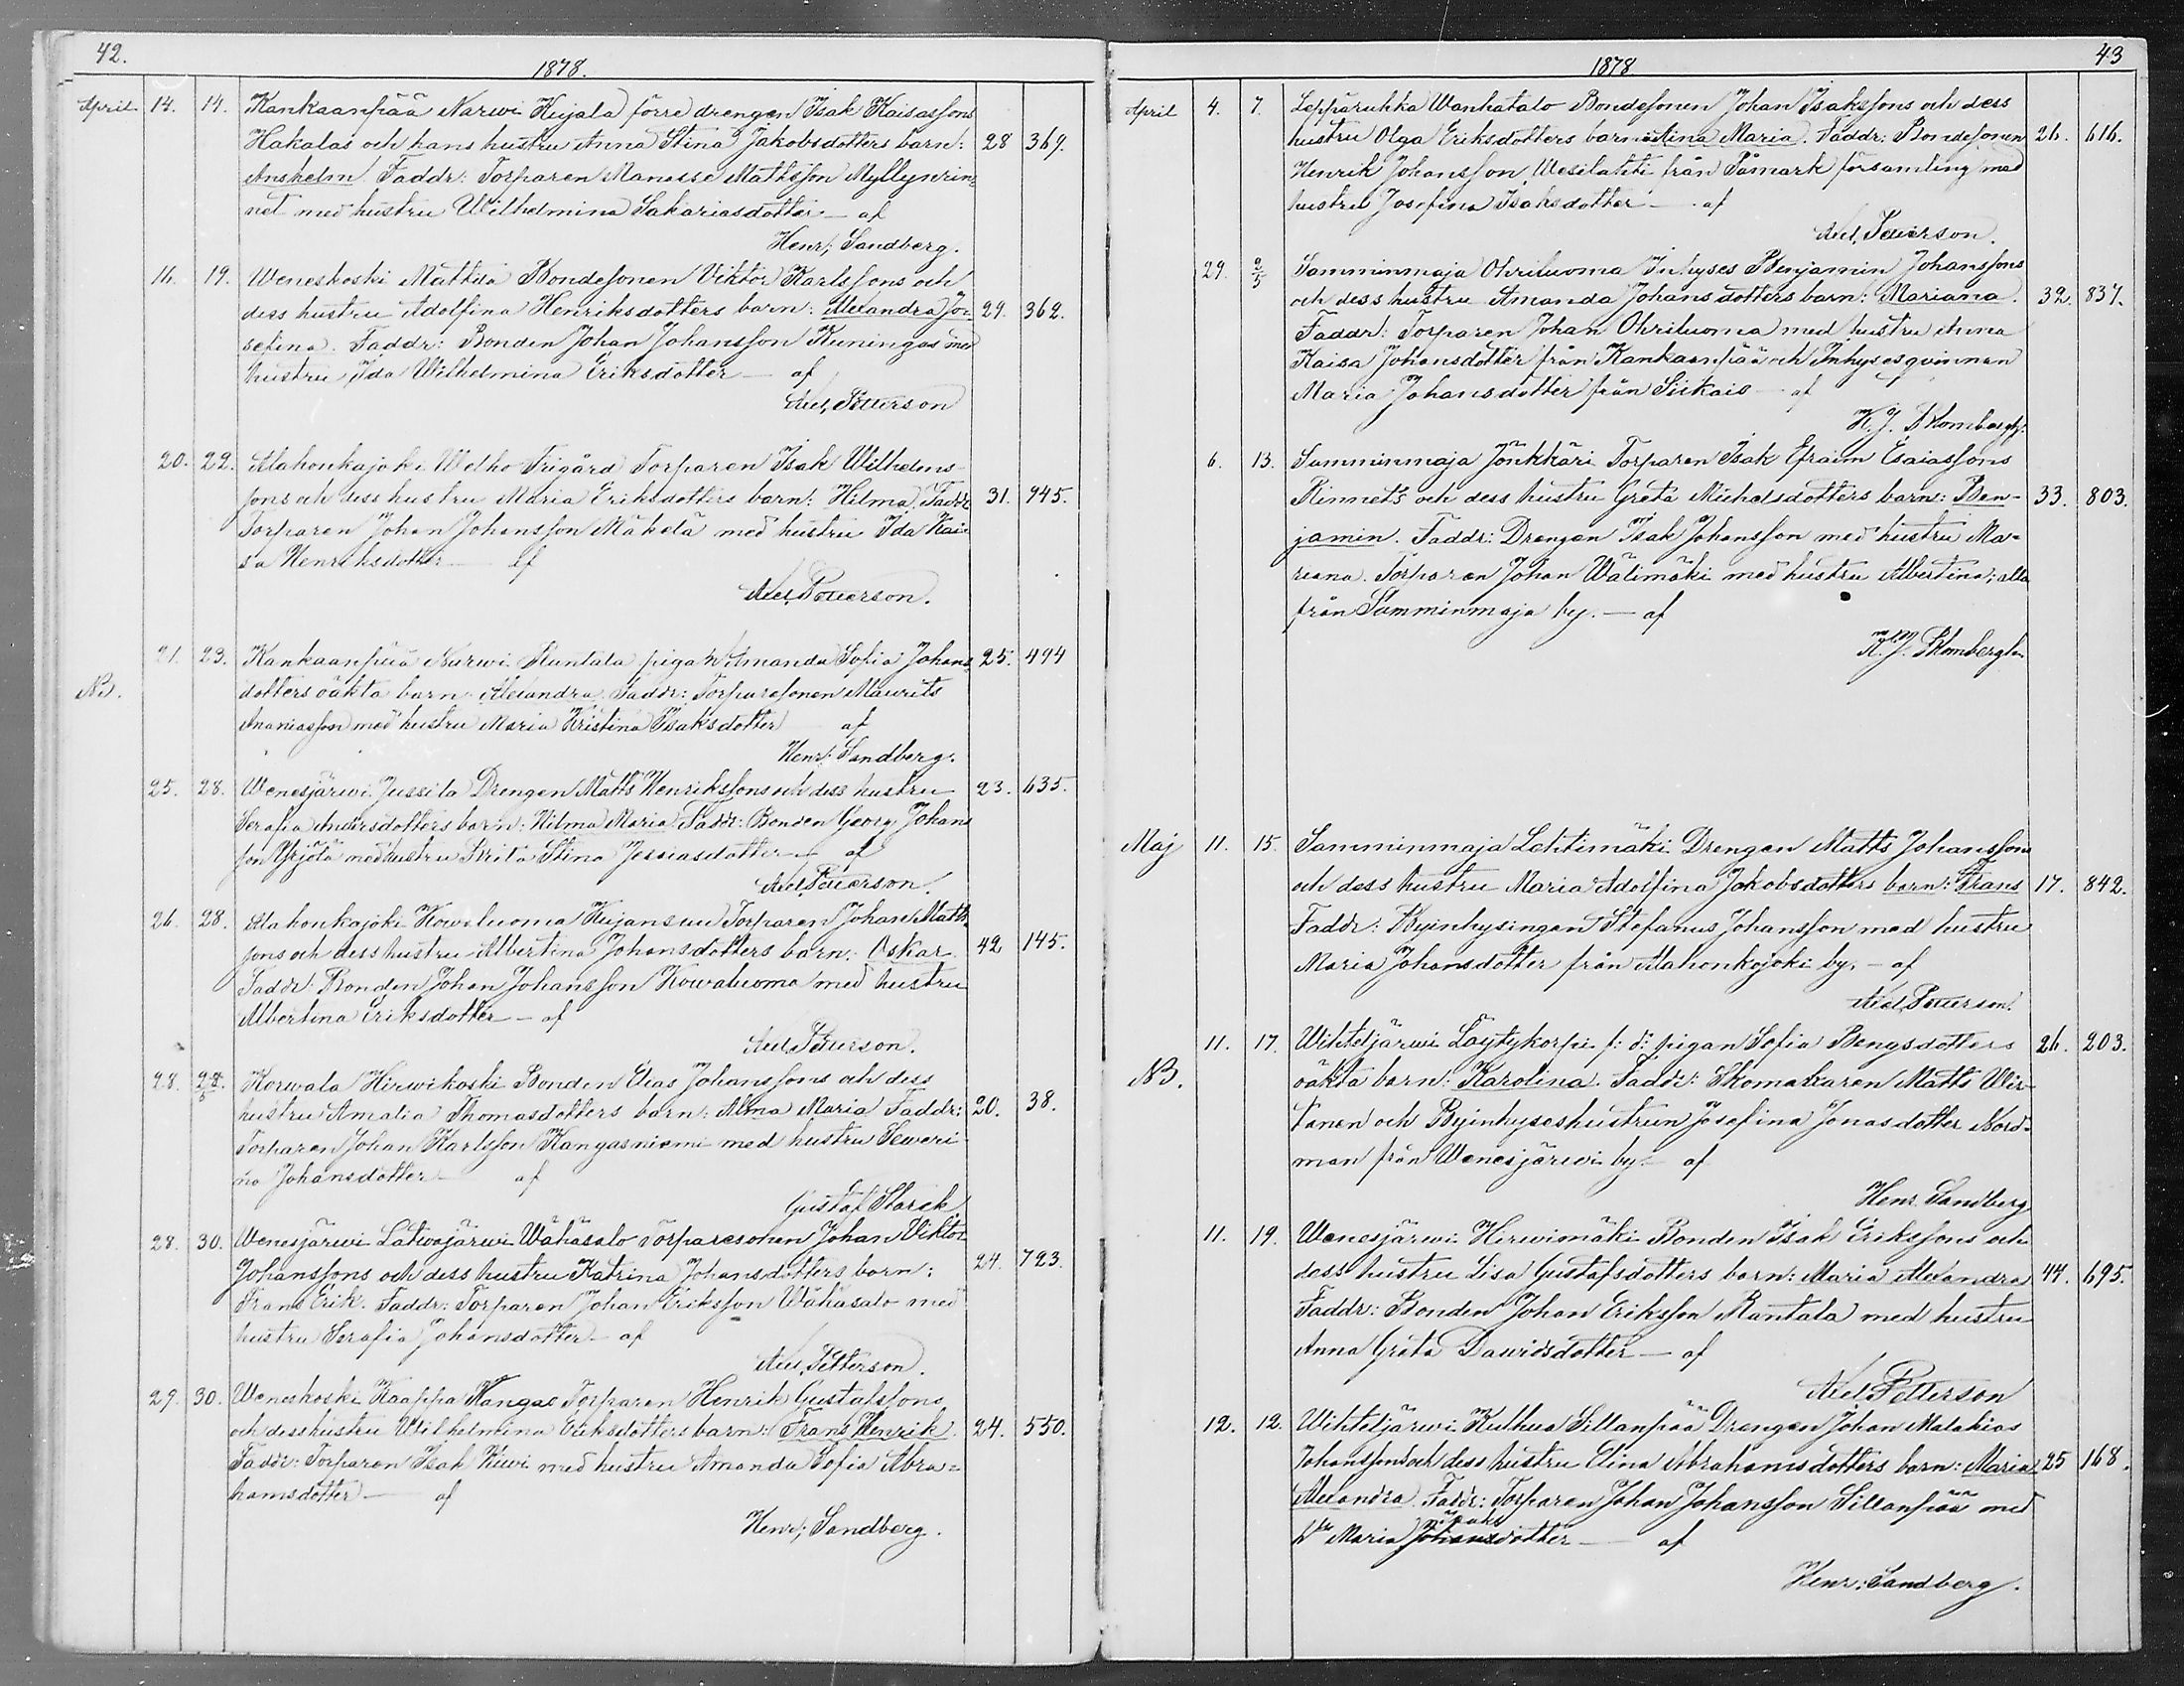 42.
1878.
April 14. 14. Kankaanpää Narwi Kujala förre drengen Isak Kaisassons
Hakalas och hans hustru Anna Stina Jakobsdotters barn: 28 369.
Anshelm. Faddr: Torparen Manasse Mattsson Myllynrin=
net med hustru Wilhelmina Sakariasdotter — af
Henr; Sandberg.
16. 19. Weneskoski Mattila Bondesonen Viktor Karlssons och
dess hustru Adolfina Henriksdotters barn: Alexandra Jo= 29. 362.
sefina. Faddr: Bonden Johan Johansson Kuningas med
hustru Ida Wilhelmina Eriksdotter — af
Axel Petterson
20. 22. Alahonkajoki Welho Frigård Torparen Isak Wilhelms-
sons och dess hustru Maria Eriksdotters barn: Hilma. Faddr: 31. 945.
Torparen Johan Johansson Mäkelä med hustru Ida Kai=
sa Henriksdotter — af
Axel Petterson.
21. 23. Kankaanpää Narwi Runtala pigan Amanda Sofia Johans= 25. 494
NB. dotters oäkta barn Alexandra. Faddr: Torparesonen Maurits
Ananiasson med hustru Maria Kristina Isaksdotter af
Henr; Sandberg.
25. 28. Wenesjärwi Jussila Drengen Matts Henrikssons och dess hustru 23. 635.
Serafia Andersdotters barn: Hilma Maria. Faddr: Bonden Georg Johans
son Yrjölä med hustru Brita Stina Jessiasdotter — af
Axel Petterson.
26. 28. Alahonkajoki Kowaluoma Kujansuu Torparen Johan Matts
sons och dess hustru Albertina Johansdotters barn: Oskar. 42 145.
Faddr: Bonden Johan Johansson Kowaluoma med hustru
Albertina Eriksdotter — af
Axel Petterson.
28. Korwala Hirwikoski Bonden Elias Johanssons och dess
hustru Amalia Thomasdotters barn: Alma Maria Faddr: 20. 38.
Torparen Johan Karlsson Kangasniemi med hustru Seweri-
na Johansdotter — af
Gustaf Starck
28. 30. Wenesjärwi Latwajärwi Wähäsalo Torparesonen Johan Viktor
Johanssons och dess hustru Katrina Johansdotters barn: 24. 723.
Frans Erik. Faddr: Torparen Johan Eriksson Wähäsalo med
hustru Serafia Johansdotter — af
Axel Petterson.
29. 30. Weneskoski Kaappa Kangas Torparen Henrik Gustafssons
och dess hustru Wilhelmina Eriksdotters barn: Frans Henrik. 24. 550.
Faddr: Torparen Isak Kiwi med hustru Amanda Sofia Abra=
hamsdotter — af
Henr; Sandberg.
43
1878
April 4. 7. Leppäruhka Wanhatalo Bondesonen Johan Isakssons och dess
hustru Olga Eriksdotters barn: Stina Maria. Faddr: Bondesonen 26. 616.
Henrik Johansson Wesilahti från Påmark församling med
hustru Josefina Isaksdotter — af
Axel Petterson.
29. 9/5 Samminmaja Ohriluoma Inhyses Benjamin Johanssons
och dess hustru Amanda Johansdotters barn: Mariana. 32. 837.
Faddr: Torparen Johan Ohriluoma med hustru Anna
Kaisa Johansdotter från Kankaanpää och Inhysesqvinnan
Maria Johansdotter från Siikais — af
K. J. Blombergh.
6. 13. Samminmaja Jönkkäri Torparen Isak Efraim Esaiassons
Rinnet's och dess hustru Greta Michelsdotters barn: Ben- 33. 803.
jamin. Faddr: Drengen Isak Johansson med hustru Ma=
riana. Torparen Johan Wälimäki med hustru Albertina; alla
från Samminmaja by. — af
K. J. Blombergh.
Maj 11. 15. Samminmaja Lehtimäki Drengen Matts Johanssons
och dess hustru Maria Adolfina Jakobsdotters barn: Frans 17. 842.
Faddr: Byinhysingen Stefanus Johansson med hustru
Maria Johansdotter från Alahonkojoki by. — af
Axel Petterson.
11. 17. Wihteljärwi Löytykorpi f: d: pigan Sofia Bengsdotters 26. 203.
NB. oäkta barn: Karolina. Faddr: Skomakaren Matts Wir-
tanen och Byinhyseshustrun Josefina Jonasdotter Nord-
man från Wenesjärwi by. — af
Henr. Sandberg
11. 19. Wenesjärwi Hirwimäki Bonden Isak Erikssons och
dess hustru Lisa Gustafsdotters barn: Maria Alexandra 44. 695.
Faddr: Bonden Johan Eriksson Rantala med hustru
Anna Greta Dawidsdotter — af
Axel Petterson
12. 12. Wihteljärwi Kulhua Sillanpää Drengen Johan Malakias
Johanssons och dess hustru Elina Abrahamsdotters barn: Maria 25 168.
Alexandra. Faddr: Torparen Johan Johansson Sillanpää med
h:u Maria Johansdotter — af
Henr: Sandberg.